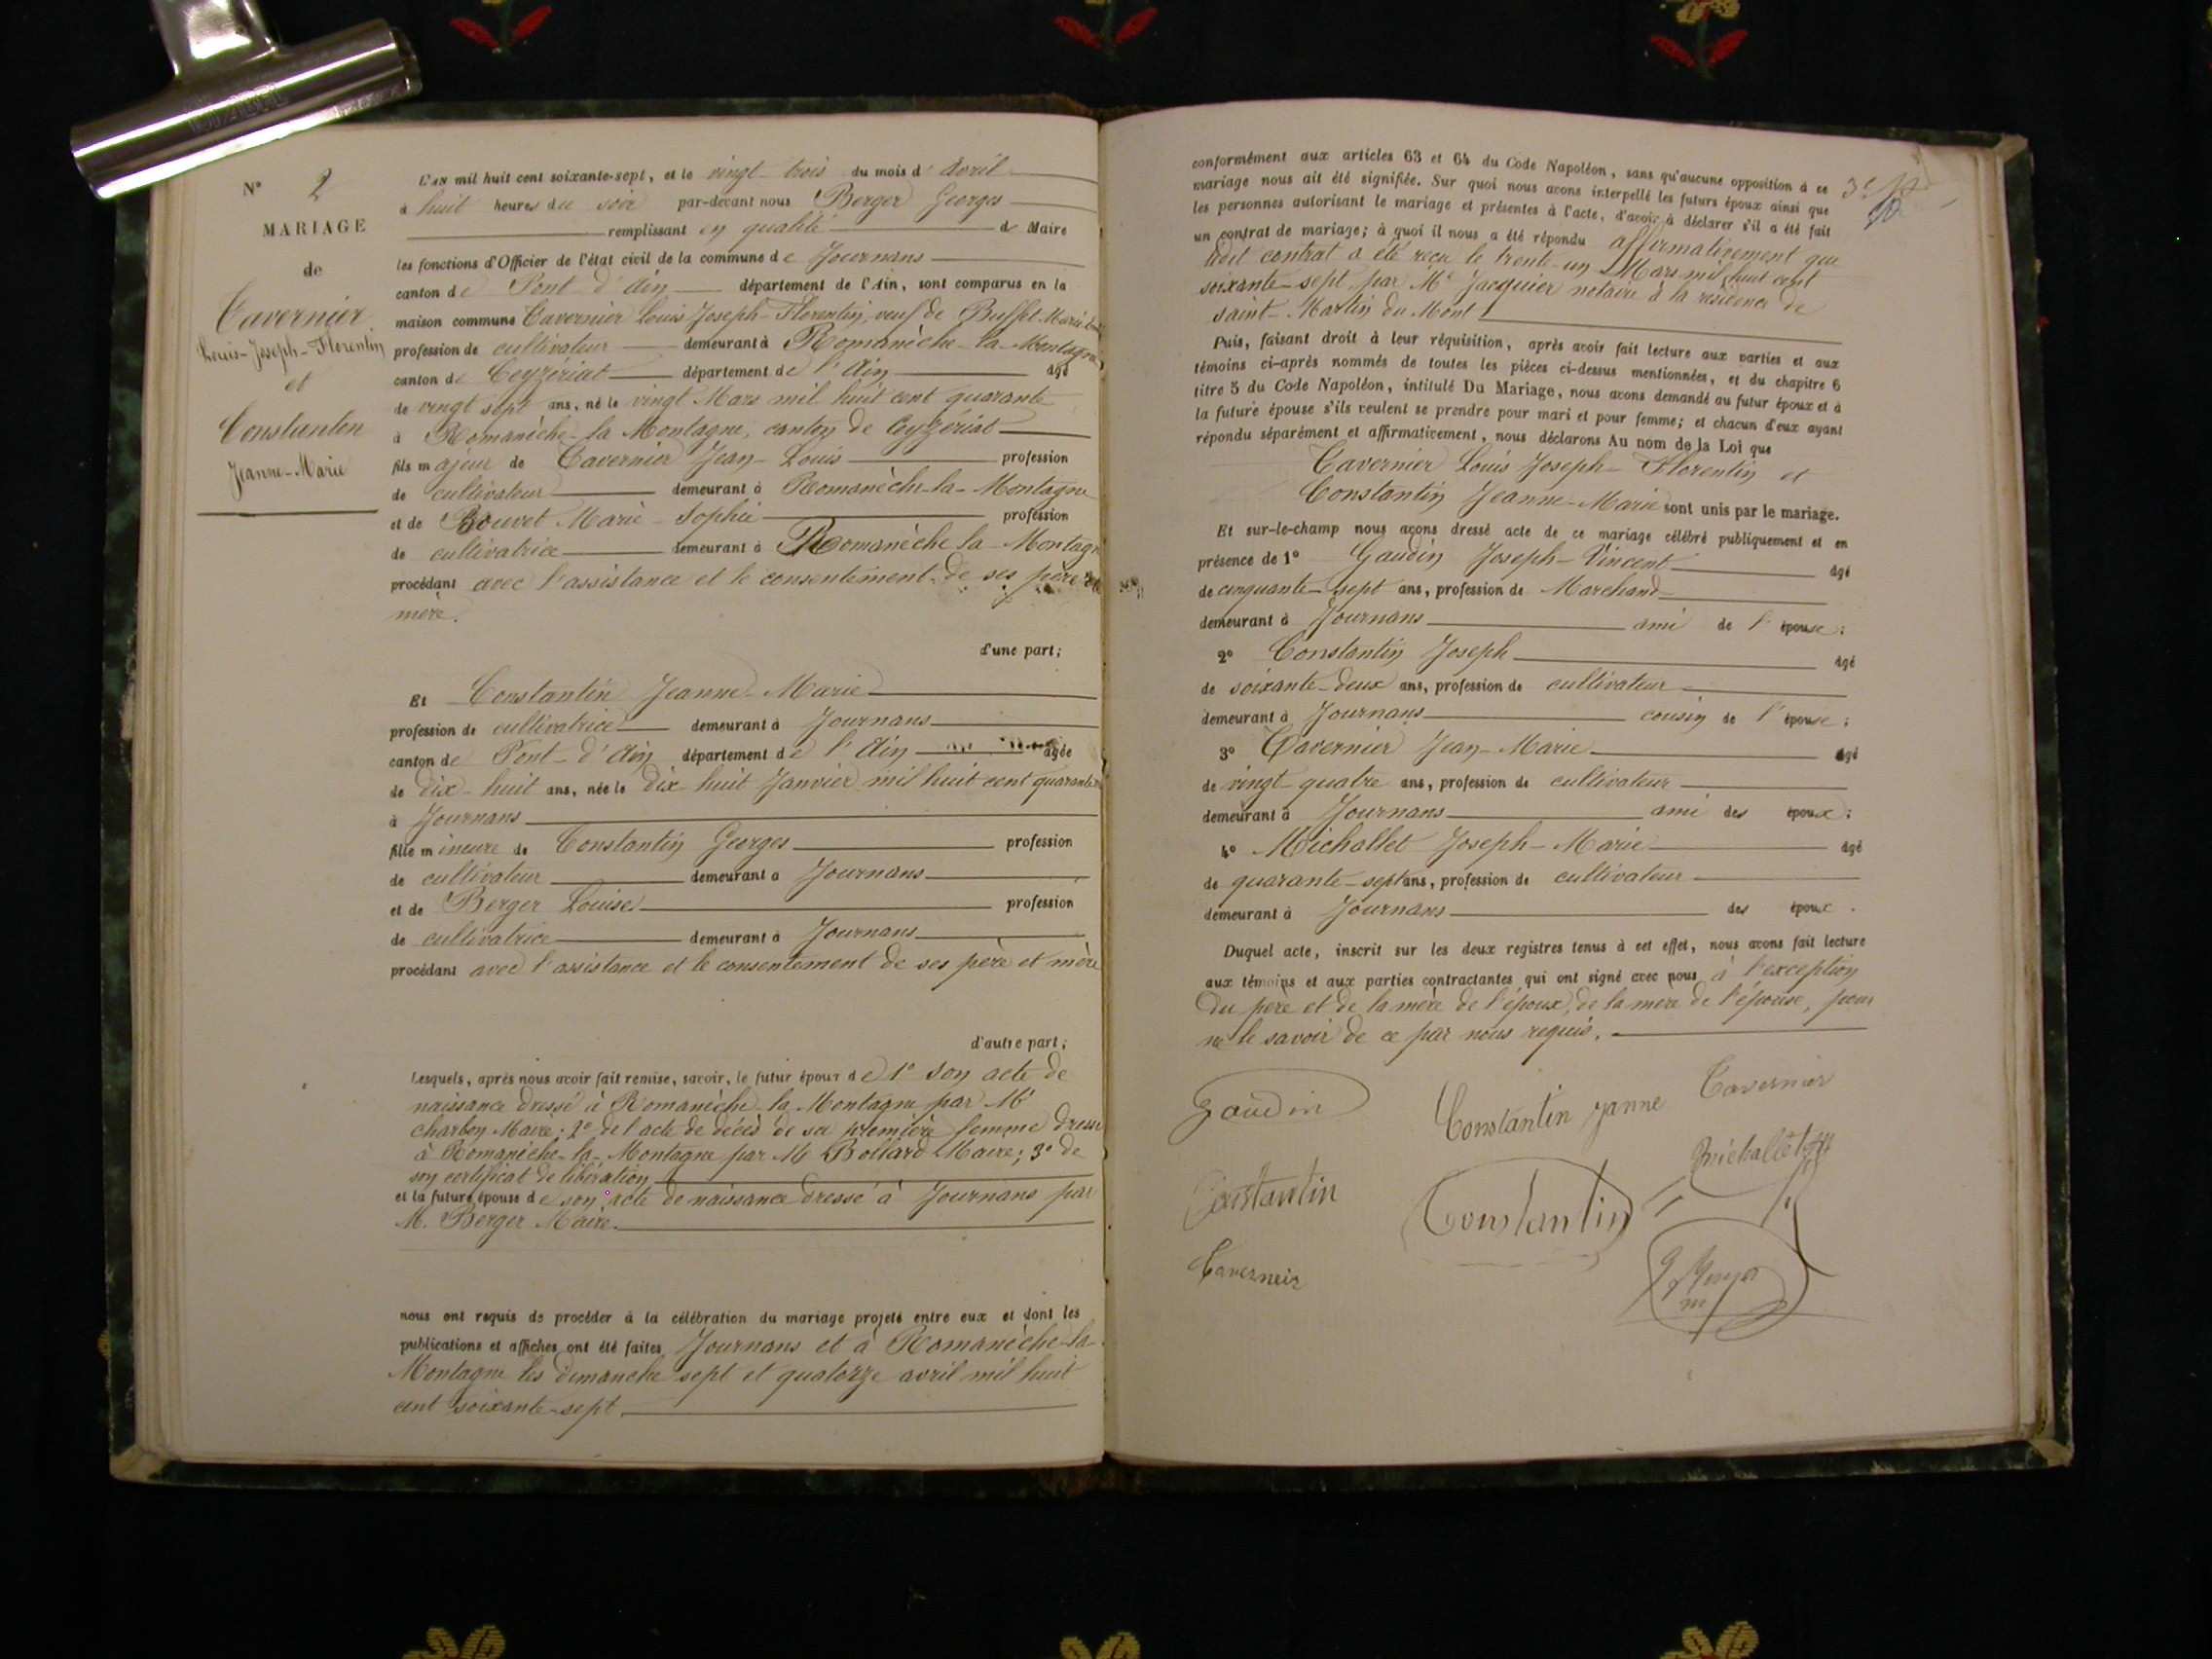 N° 2
MARIAGE
de
Tavernier
Louis-Joseph-Florentin
et
Constantin
Jeanne-Marie
L'AN mil huit cent soixante-sept, et le vingt-trois du mois d'Avril
à huit heures du soir par-devant nous Berger Georges
remplissant en qualité de Maire
les fonctions d'Officier de l'état civil de la commune de Journans
canton de Pont d'Ain département de l'Ain, sont comparus en la
maison commune Tavernier Louis Joseph-Florentin, veuf de Buffet Marie
profession de cultivateur demeurant à Romanèche-la-Montagne
canton de Ceyzeriat département de l'Ain âgé
de vingt sept ans, né le vingt Mars mil huit cent quarante
à Romanèche-la Montagne, canton de Ceyzériat
fils majeur de Tavernier Jean-Louis profession
de cultivateur demeurant à Romanèche-la-Montagne
et de Bouvet Marie-Sophie profession
de cultivatrice demeurant à Romanèche la-Montagn
procédant avec l'assistance et le consentement de ses père et
mère.
d'une part;
Et Constantin Jeanne-Marie
profession de cultivatrice demeurant à Journans
canton de Pont-d'Ain département de l'Ain âgée
de dix-huit ans, née le dix huit Janvier mil huit cent quarante
à Journans
fille mineure de Constantin Georges profession
de cultivateur demeurant à Journans
et de Berger Louise profession
de cultivatrice demeurant à Journans
procédant avec l'assistance et le consentement de ses père et mère
d'autre part;
Lesquels, après nous avoir fait remise, savoir, le futur époux de 1° son acte de
naissance dressé à Romanèche-la-Montagne par Mr
Charbon Maire; 2° de l'acte de décès de sa première femme dressé
à Romanèche-la-Montagne par Mr Bollard Maire; 3° de
son certificat de libération
et la future épouse de son acte de naissance dressé à Journans par
M. Berger Maire.
nous ont requis de procéder à la célébration du mariage projeté entre eux et dont les
publications et affiches ont été faites Journans et à Romanèche-la-
Montagne les dimanche sept et quatorze avril mil huit
cent soixante-sept
conformément aux articles 63 et 64 du Code Napoléon, sans qu'aucune opposition à ce
mariage nous ait été signifiée. Sur quoi nous avons interpellé les futurs époux ainsi que
les personnes autorisant le mariage et présentes à l'acte, d'avoir à déclarer s'il a été fait
un contrat de mariage; à quoi il nous a été répondu affirmativement que
ledit contrat a été reçu le trente-un Mars mil huit cent
soixante-sept par Me Jacquier notaire à la résidence de
Saint-Martin du Mont
Puis, faisant droit à leur réquisition, après avoir fait lecture aux parties et aux
témoins ci-après nommés de toutes les pièces ci-dessus mentionnées, et du chapitre 6
titre 5 du Code Napoléon, intitulé Du Mariage, nous avons demandé au futur époux et à
la future épouse s'ils veulent se prendre pour mari et pour femme; et chacun d'eux ayant
répondu séparément et affirmativement, nous déclarons Au nom de la Loi que
Tavernier Louis Joseph-Florentin et
Constantin Jeanne-Marie sont unis par le mariage.
Et sur-le-champ nous avons dressé acte de ce mariage célébré publiquement et en
présence de 1° Gaudin Joseph-Vincent âgé
de cinquante-sept ans, profession de Marchand
demeurant à Journans ami de l'épouse;
2° Constantin Joseph âgé
de soixante-deux ans, profession de cultivateur
demeurant à Journans cousin de l'épouse;
3° Tavernier Jean-Marie âgé
de vingt-quatre ans, profession de cultivateur
demeurant à Journans ami des époux;
4° Michallet Joseph-Marie âgé
de quarante-sept ans, profession de cultivateur
demeurant à Journans des époux.
Duquel acte, inscrit sur les deux registres tenus à cet effet, nous avons fait lecture
aux témoins et aux parties contractantes qui ont signé avec nous à l'exception
du père et de la mère de l'époux, de la mère de l'épouse, pour
ne le savoir de ce par nous requis.
Gaudin
Constantin Janne
Tavernier
Michallet
Constantin
Constantin
Taverneir